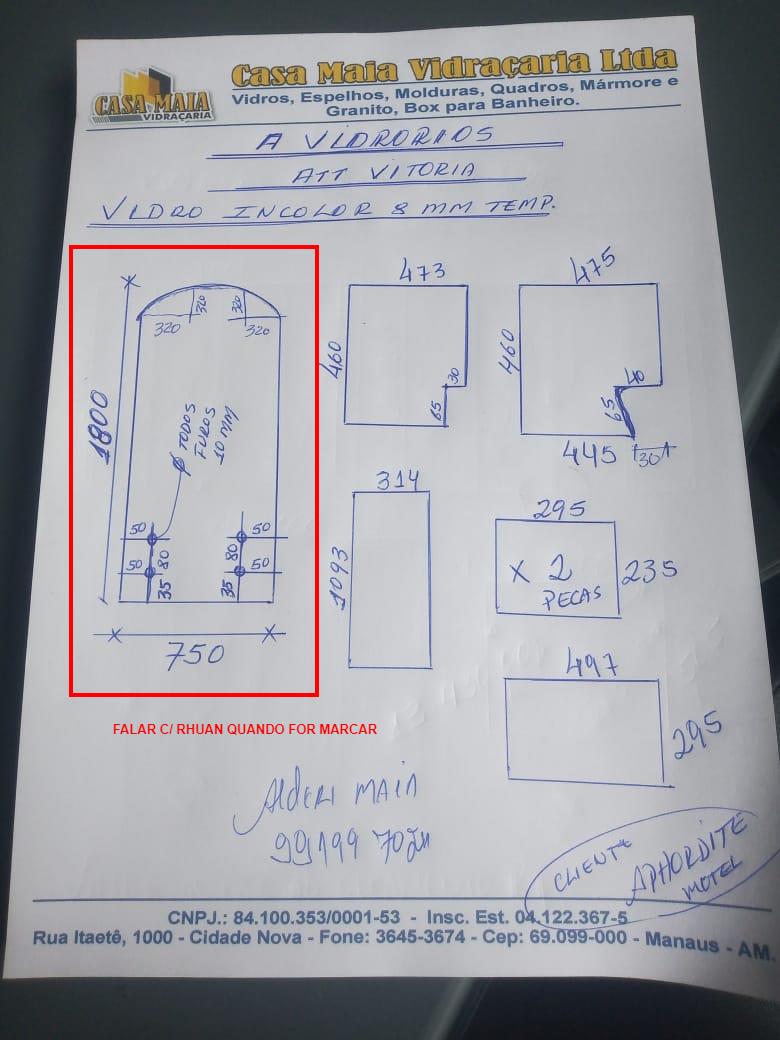 Casa Maia Vidraçaria Ltda
CASA MAIA
VIDRAÇARIA
Vidros, Espelhos, Molduras, Quadros, Mármore e
Granito, Box para Banheiro.
A VIDRORIOS
ATT VITORIA
VIDRO INCOLOR 8 MM TEMP.
320 320
320 320
1800
TODOS
FUROS
10 MM
50 50
80 80
50 50
35 35
750
473
460
30
65
475
460
40
65
445 30
314
1093
295
X 2
PECAS
235
497
295
FALAR C/ RHUAN QUANDO FOR MARCAR
Alderi MAIA
99199
CLIENTE
APHORDITE
MOTEL
CNPJ.: 84.100.353/0001-53 - Insc. Est. 04.122.367-5
Rua Itaetê, 1000 - Cidade Nova - Fone: 3645-3674 - Cep: 69.099-000 - Manaus - AM.